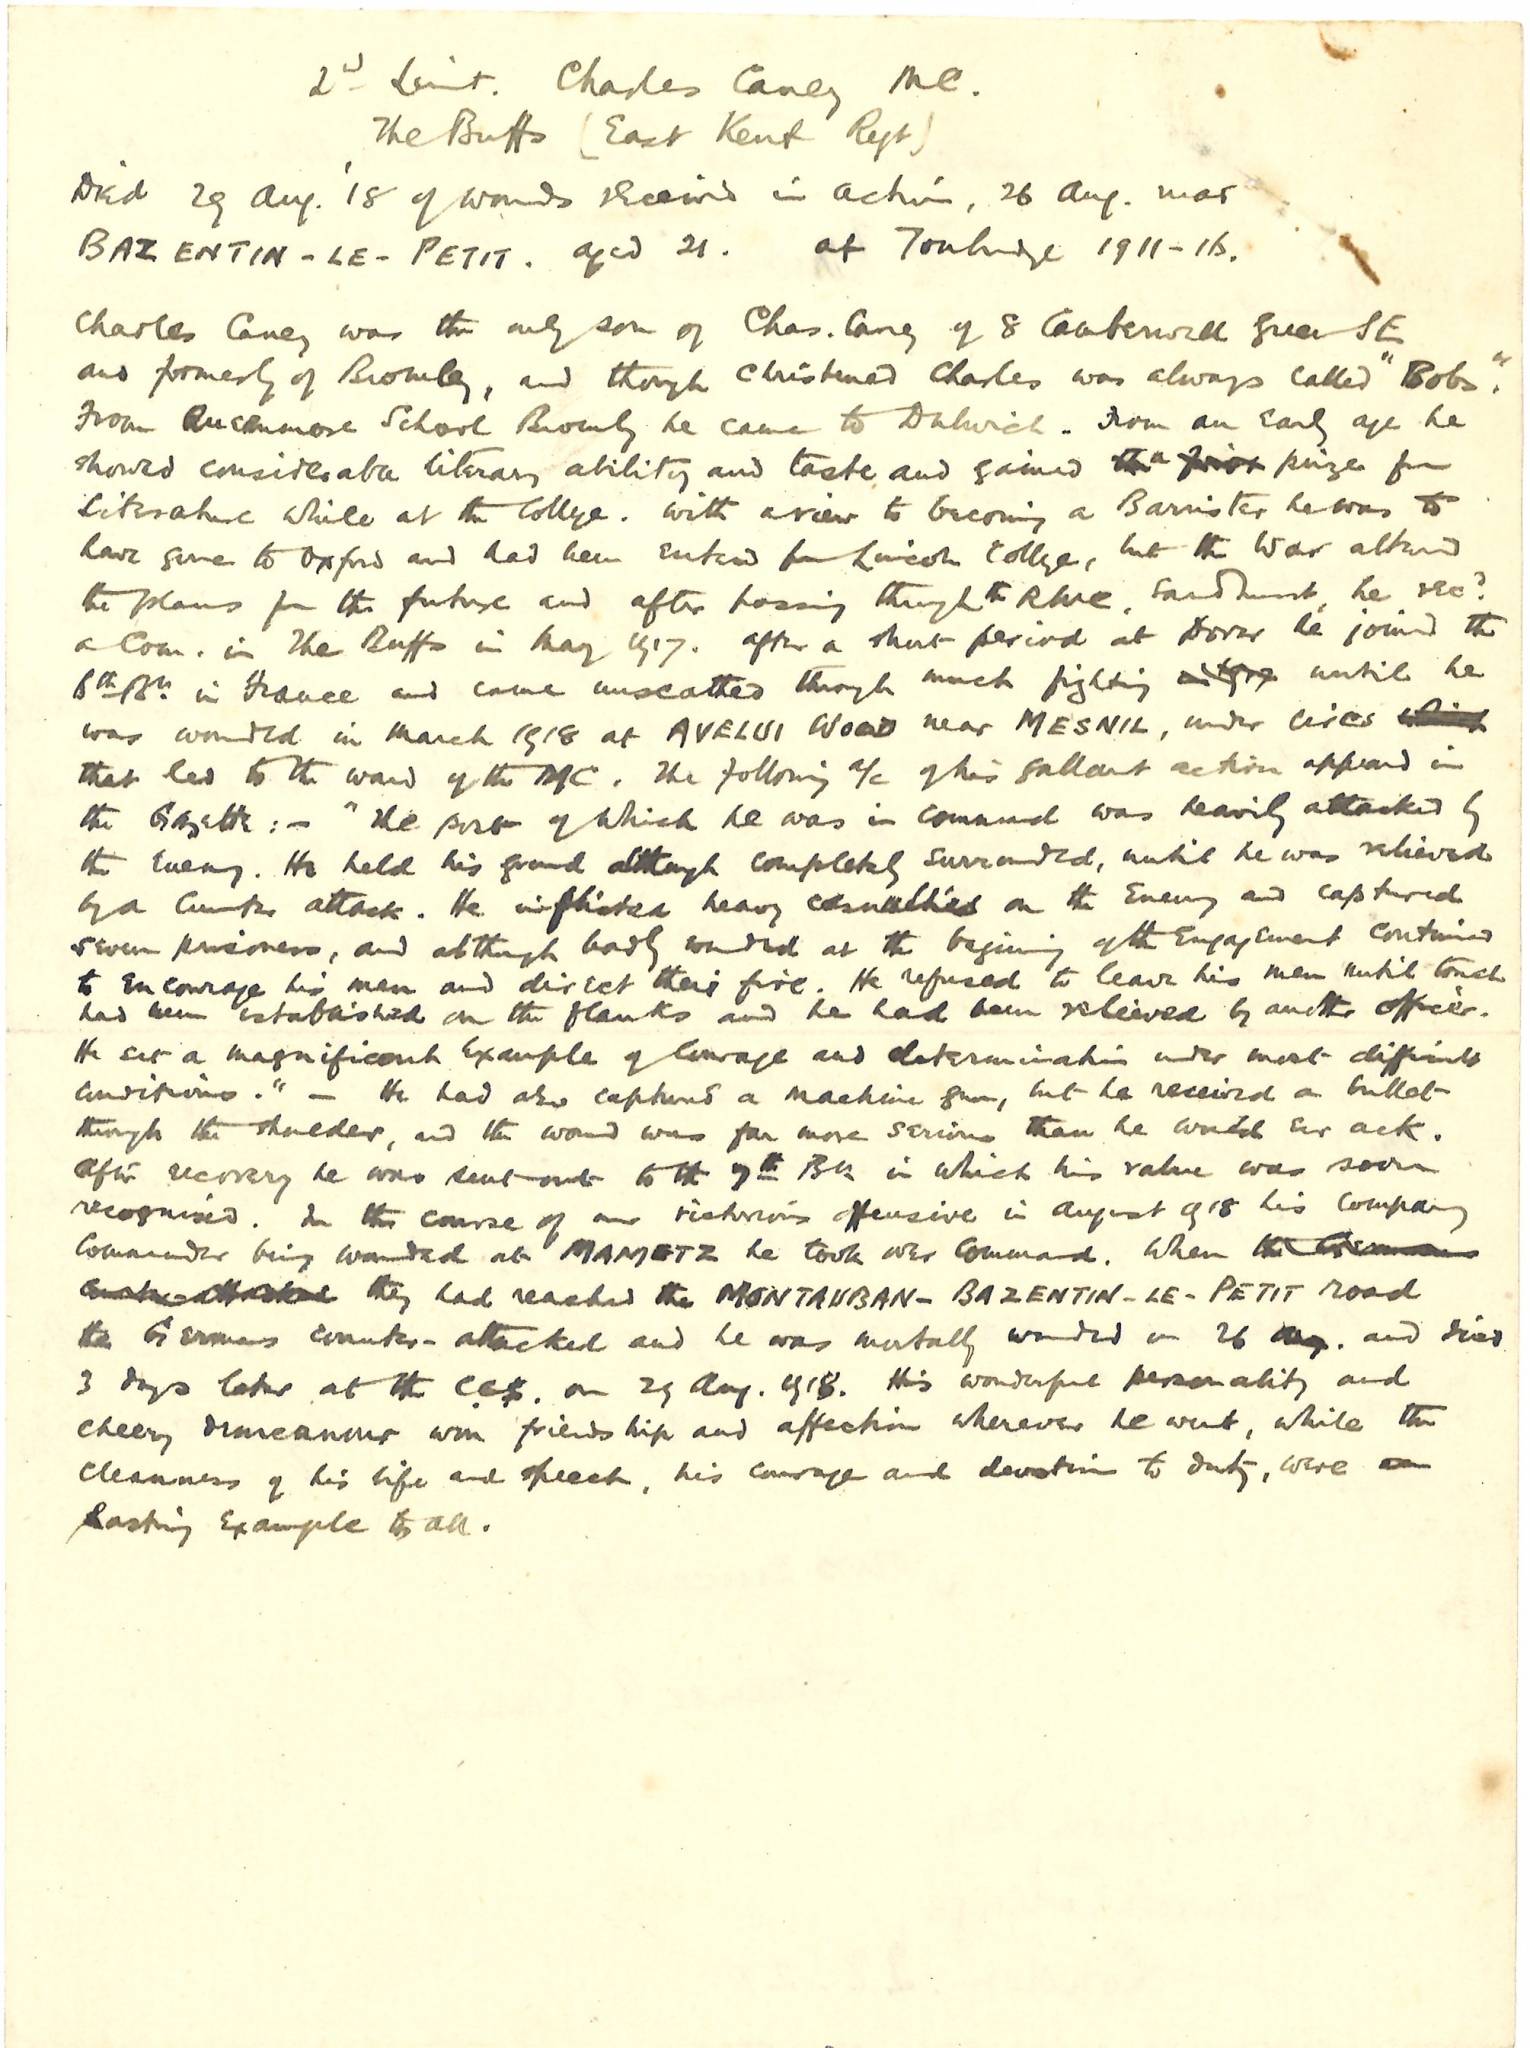 2nd Lieut. Charles Caney MC.
The Buffs (East Kent Regt)
Died 29 Aug. '18 of wounds received in action, 26 Aug. near
BAZENTIN-LE-PETIT. aged 21. at Tonbridge 1911-16.
Charles Caney was the only son of Chas. Caney of 8 Camberwell Green SE
and formerly of Bromley, and though christened Charles was always called "Bobs".
From Quernmore School Bromley he came to Dulwich. From an early age he
showed considerable literary ability and taste and gained a prize for
Literature while at the College. With a view to becoming a Barrister he was to
have gone to Oxford and had been entered for Lincoln College, but the War altered
the plans for the future and after passing through the RMC, Sandhurst, he recd
a Com. in The Buffs in May 1917. After a short period at Dover he joined the
6th Bn in France and came unscathed through much fighting until he
was wounded in March 1918 at AVELUI WOOD near MESNIL, under circs which
that led to the award of the MC. The following a/c of his gallant action appeared in
the Gazette:- "The post of which he was in command was heavily attacked by
the Enemy. He held his ground although completely surrounded, until he was relieved
by a Counter attack. He inflicted heavy casualties on the Enemy and captured
seven prisoners, and although badly wounded at the begining of the Engagement continued
to encourage his men and direct their fire. He refused to leave his men until touch
had been established on the flanks and he had been relieved by another officer.
He set a magnificent Example of Courage and determination under most difficult
conditions." - He had also captured a machine gun, but he received a bullet
through the shoulder, and the wound was far more serious than he would ever ack.
After recovery he was sent out to the 7th Bn in which his value was soon
recognised. In the course of our victorious offensive in August 1918 his Company
Commander being wounded at MAMETZ he took over Command. When the Germans
counter-attacked they had reached the MONTAUBAN-BAZENTIN-LE-PETIT road
the Germans counter-attacked and he was mortally wounded on 26 Aug. and died
3 days later at the CCS. on 29 Aug. 1918. His wonderful personality and
cheery demeanour won friendship and affection wherever he went, while the
cleanness of his life and speech, his courage and devotion to duty, were an
Lasting Example to all.